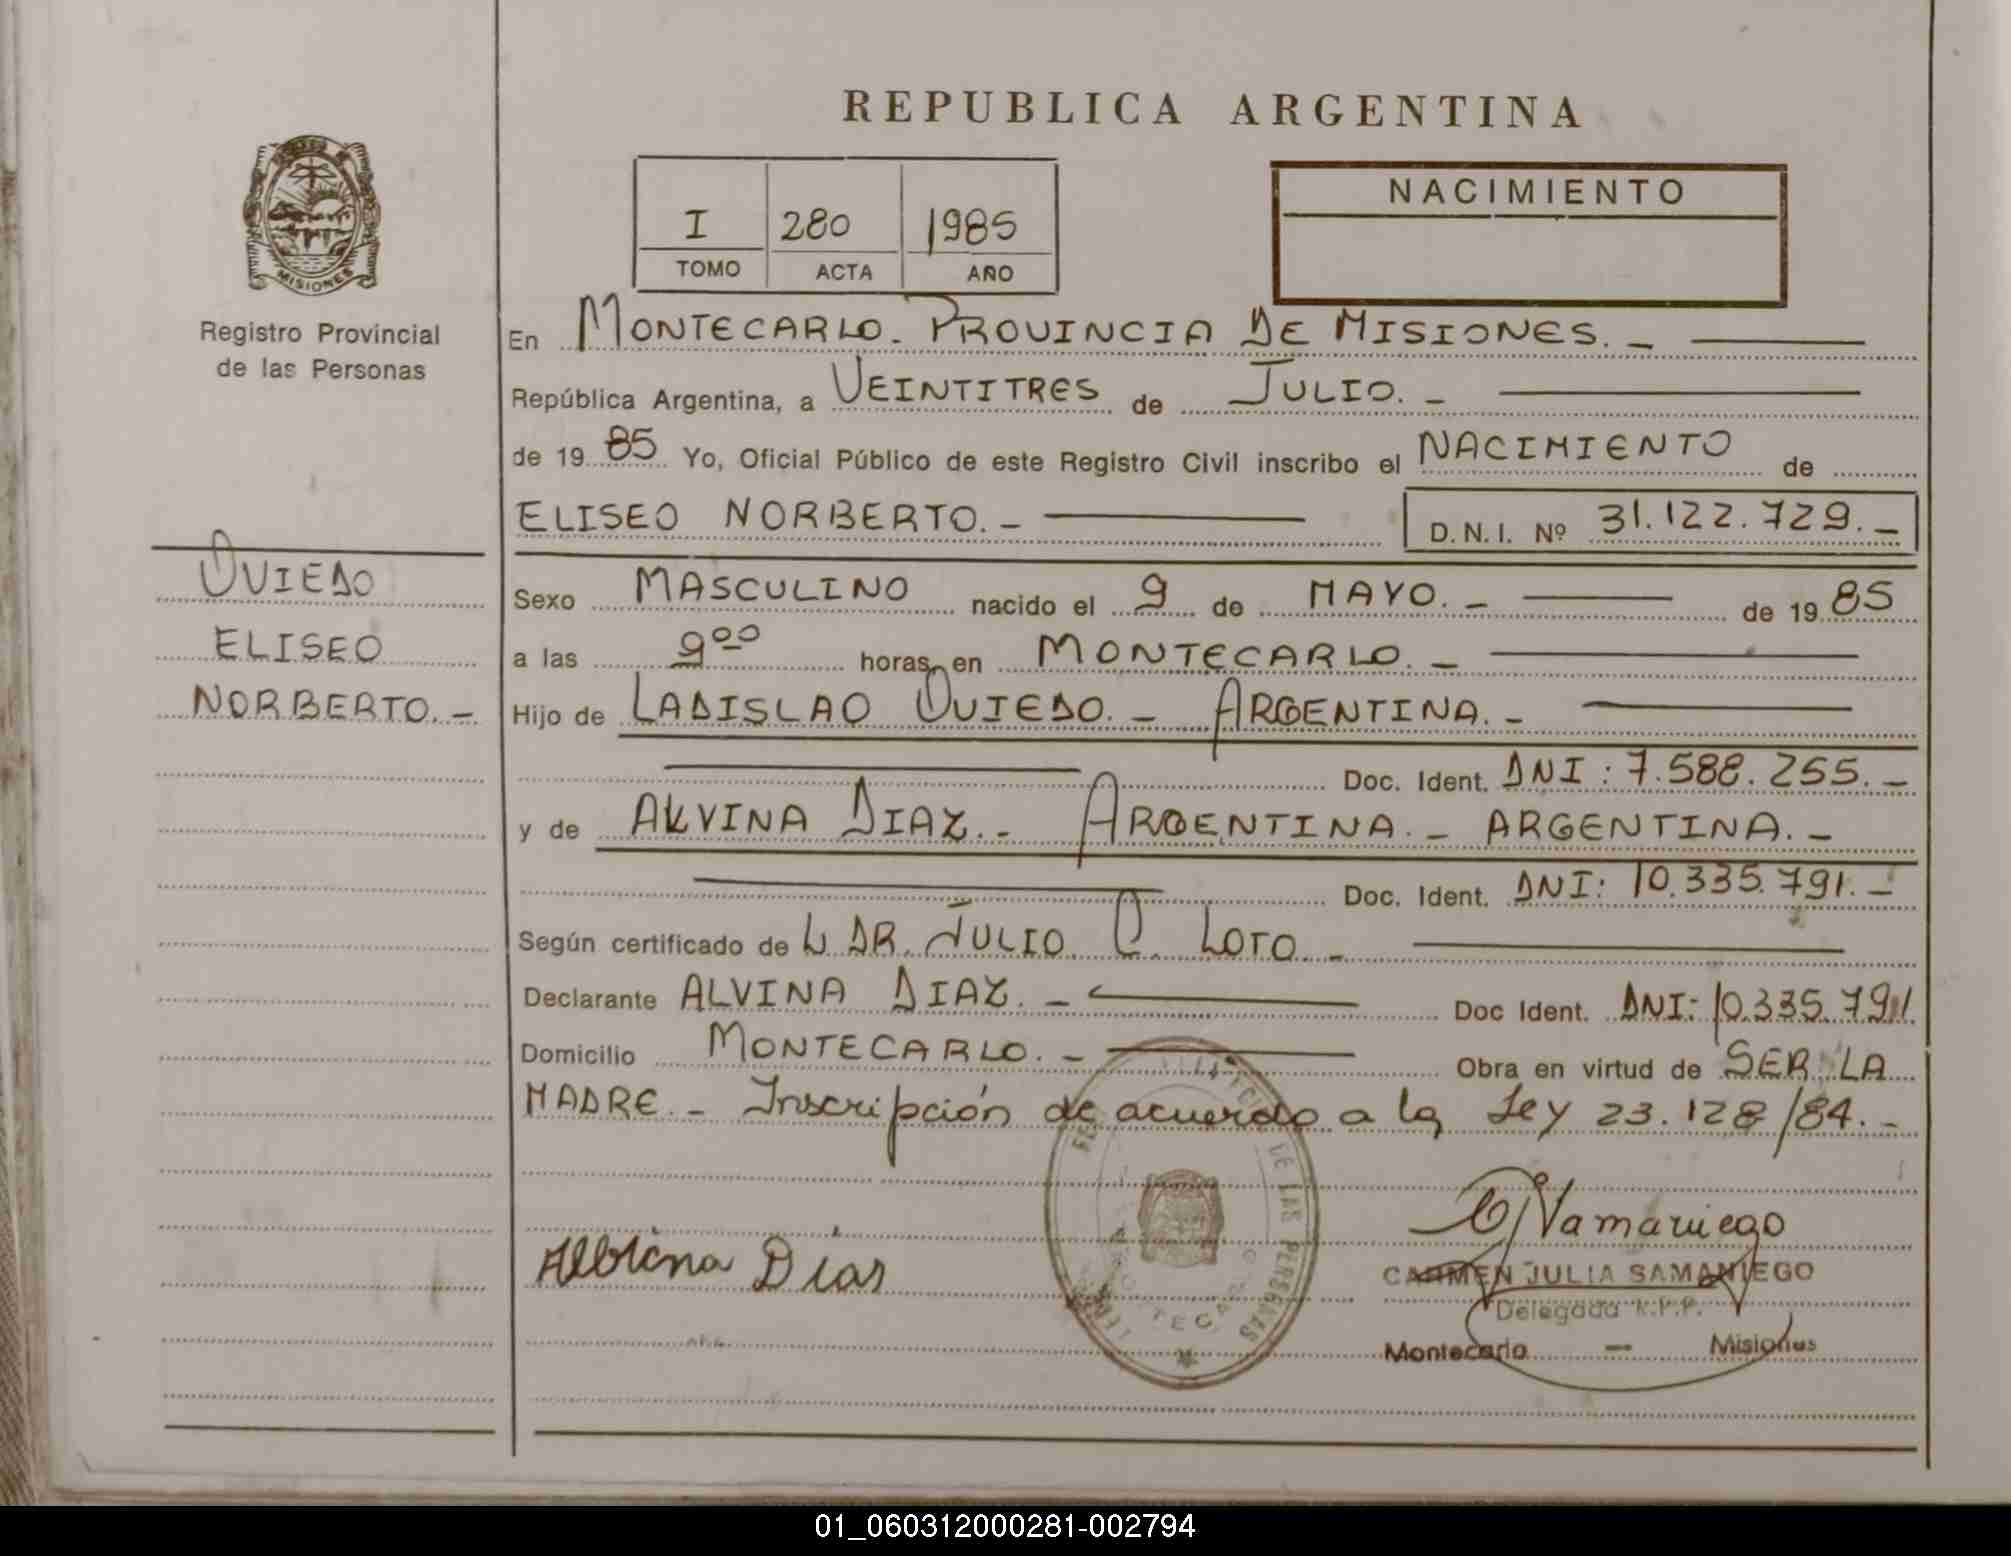 REPUBLICA ARGENTINA
MISIONES
Registro Provincial
de las Personas
I 280 1985
TOMO ACTA AÑO
NACIMIENTO
En MONTECARLO. PROVINCIA DE MISIONES. -
República Argentina, a VEINTITRES de JULIO. -
de 19 85 Yo, Oficial Público de este Registro Civil inscribo el NACIMIENTO de
ELISEO NORBERTO. - D.N.I. Nº 31.122.729. -
OVIEDO
ELISEO
NORBERTO. -
Sexo MASCULINO nacido el 9 de MAYO. - de 19 85
a las 9 00 horas, en MONTECARLO. -
Hijo de LADISLAO OVIEDO. - ARGENTINA. -
Doc. Ident. DNI: 7.588.255. -
y de ALVINA DIAZ. - ARGENTINA. - ARGENTINA. -
Doc. Ident. DNI: 10.335.791. -
Según certificado de L DR. JULIO C. LOTO. -
Declarante ALVINA DIAZ. - Doc Ident. DNI: 10.335.791.
Domicilio MONTECARLO. - Obra en virtud de SER LA
MADRE. - Inscripción de acuerdo a la Ley 23.128/84. -
DE LAS PERSONAS
Albina Dias
CARMEN JULIA SAMANIEGO
Delegada R.P.P.
Montecarlo - Misiones
01_060312000281-002794